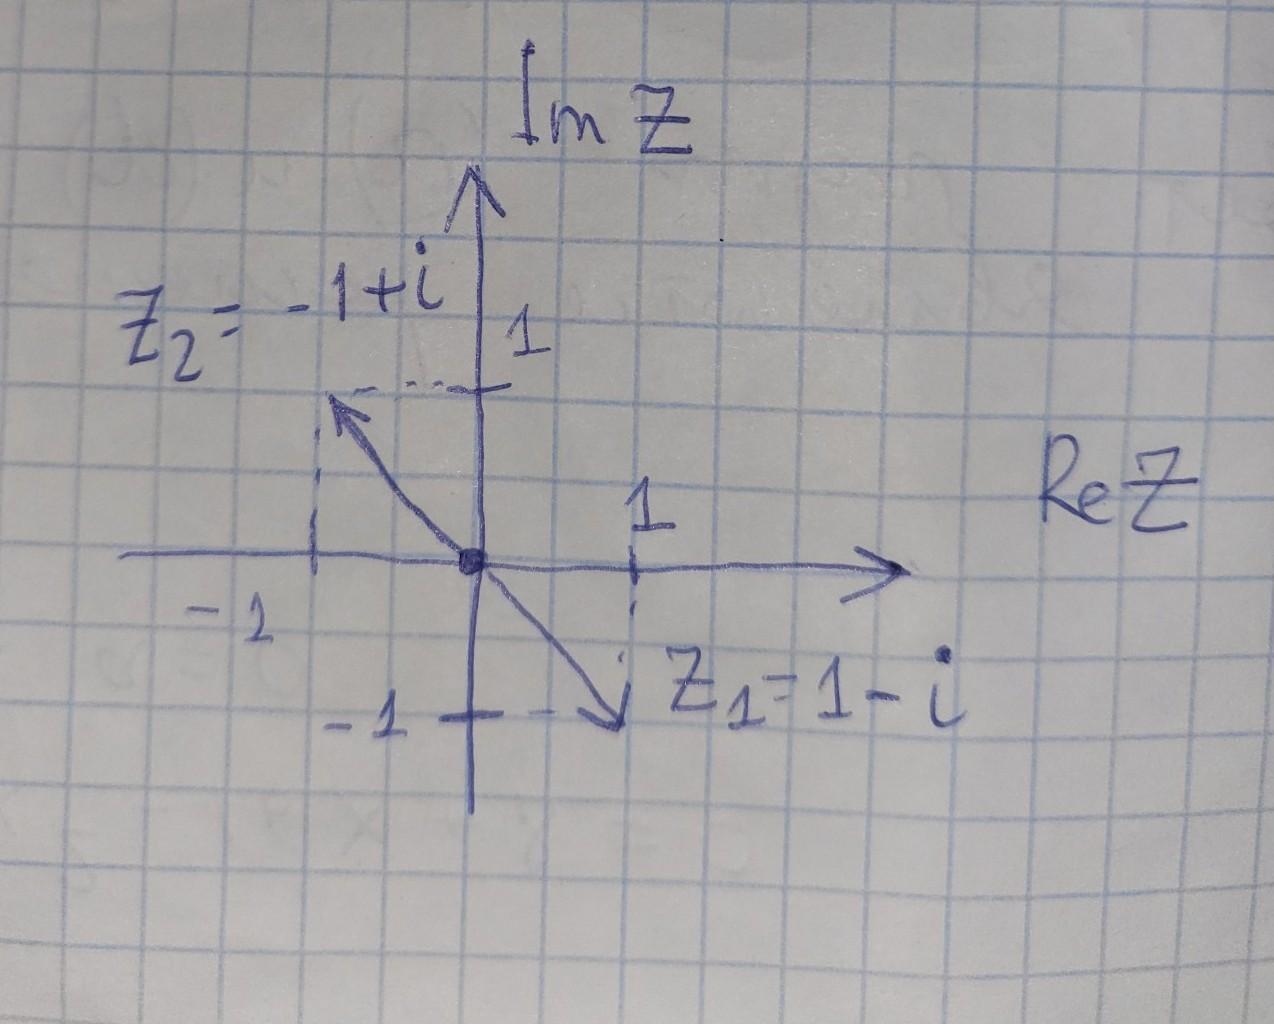 Im Z
Z₂ = -1+i
1
Re Z
1
-1
Z₁ = 1 - i
-1